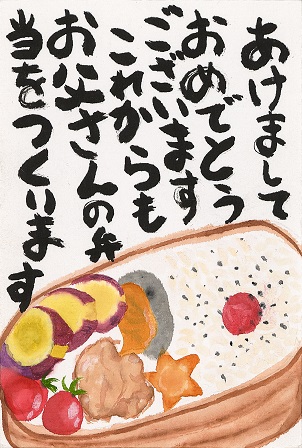 あけまして
おめでとう
ございます
これからも
お父さんの弁
当をつくいます